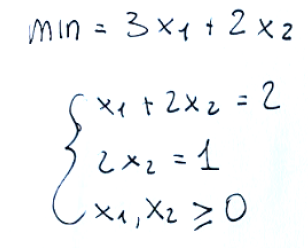 min = 3x₁ + 2x₂
x₁ + 2x₂ = 2
2x₂ = 1
x₁, x₂ ≥ 0